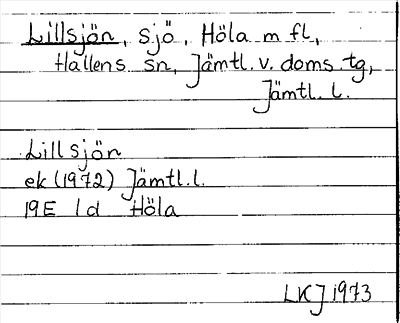 Lillsjön, sjö, Höla m fl,
Hallens sn, Jämtl. v. doms. tg,
Jämtl. l.
Lillsjön
ek (1972) Jämtl. l.
19E 1d Höla
LKJ 1973